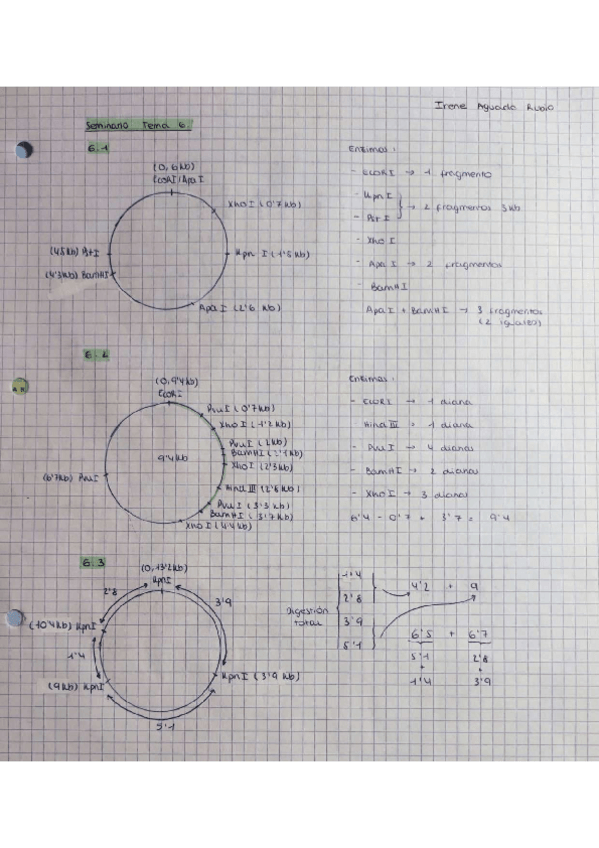 Irene Aguado Rubio
Seminario Tema 6
6.1
(0, 6 kb)
EcoRI/ApaI
XhoI (0'7kb)
Kpn I (1'5 kb)
ApaI (2'6 kb)
(4'3kb) BamHI
(4'5kb) PstI
Enzimas:
- EcoRI → 1 fragmento
- KpnI
- PstI
→ 2 fragmentos 3kb
- XhoI
- ApaI → 2 fragmentos
- BamHI
ApaI + BamHI → 3 fragmentos
(2 iguales)
6.2
(0, 9'4kb)
EcoRI
PvuI (0'7kb)
XhoI (1'2kb)
PvuI (2kb)
BamHI (2'1kb)
XhoI (2'3kb)
Hind III (2'6kb)
PvuI (3'3 kb)
BamHI (3'7kb)
XhoI (4'4kb)
(6'7kb) PvuI
9'4kb
Enzimas:
- EcoRI → 1 diana
- Hind III → 1 diana
- PvuI → 4 dianas
- BamHI → 2 dianas
- XhoI → 3 dianas
6'4 - 0'7 + 3'7 = 9'4
6.3
(0, 13'2kb)
KpnI
2'8
3'9
(10'4kb) KpnI
1'4
(9kb) KpnI
KpnI (3'9 kb)
5'1
Digestión
total
1'4
2'8
3'9
5'1
4'2 + 9
6'5 + 6'7
5'1 2'8
+ +
1'4 3'9